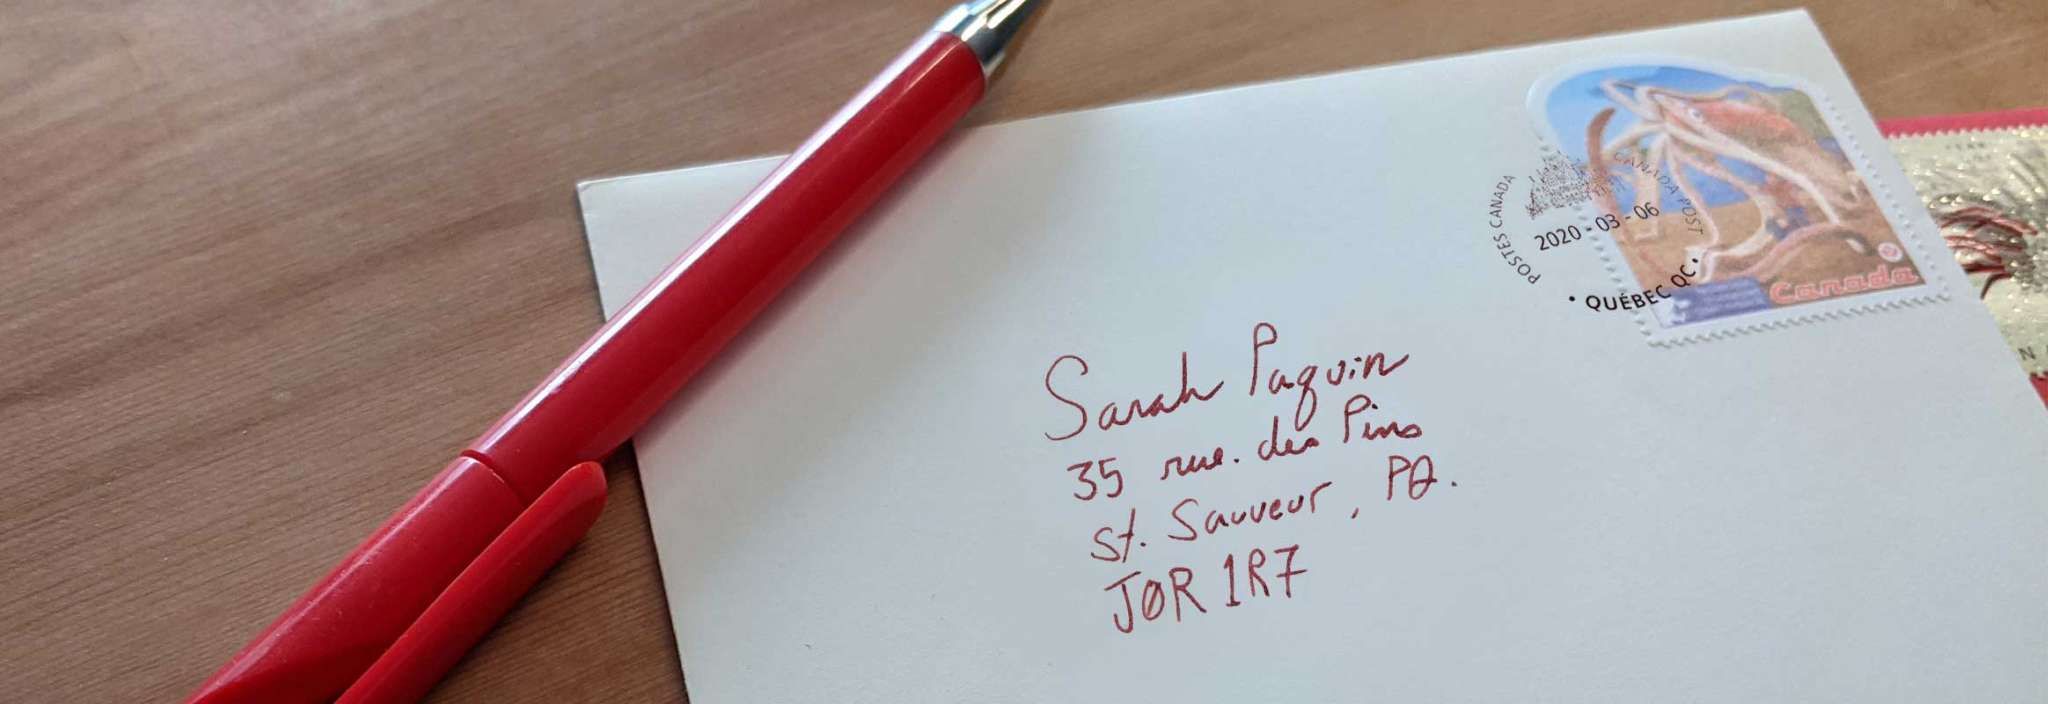 POSTES CANADA
CANADA POST
2020-03-06
• QUÉBEC QC •
Canada
Sarah Paquin
35 rue. des Pins
St. Sauveur, PQ.
JØR 1R7